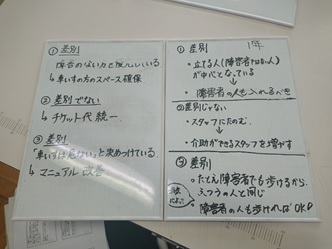 ① 差別
障害のない方を優先している
↳ 車いすの方のスペース確保
② 差別でない
↳ チケット代 統一
③ 差別
「車いすは危ない」と決めつけている
↳ マニュアル 改善
1年
① 差別
・立てる人(障害者ではない人)
が中心となっている
→ 障害者の人も入れるべき
②差別じゃない
・スタッフにたのむ
→ 介助ができるスタッフを増やす
③ 差別
・たとえ障害者でも歩けるから
ふつうの人と同じ
障害者の人も歩ければOK